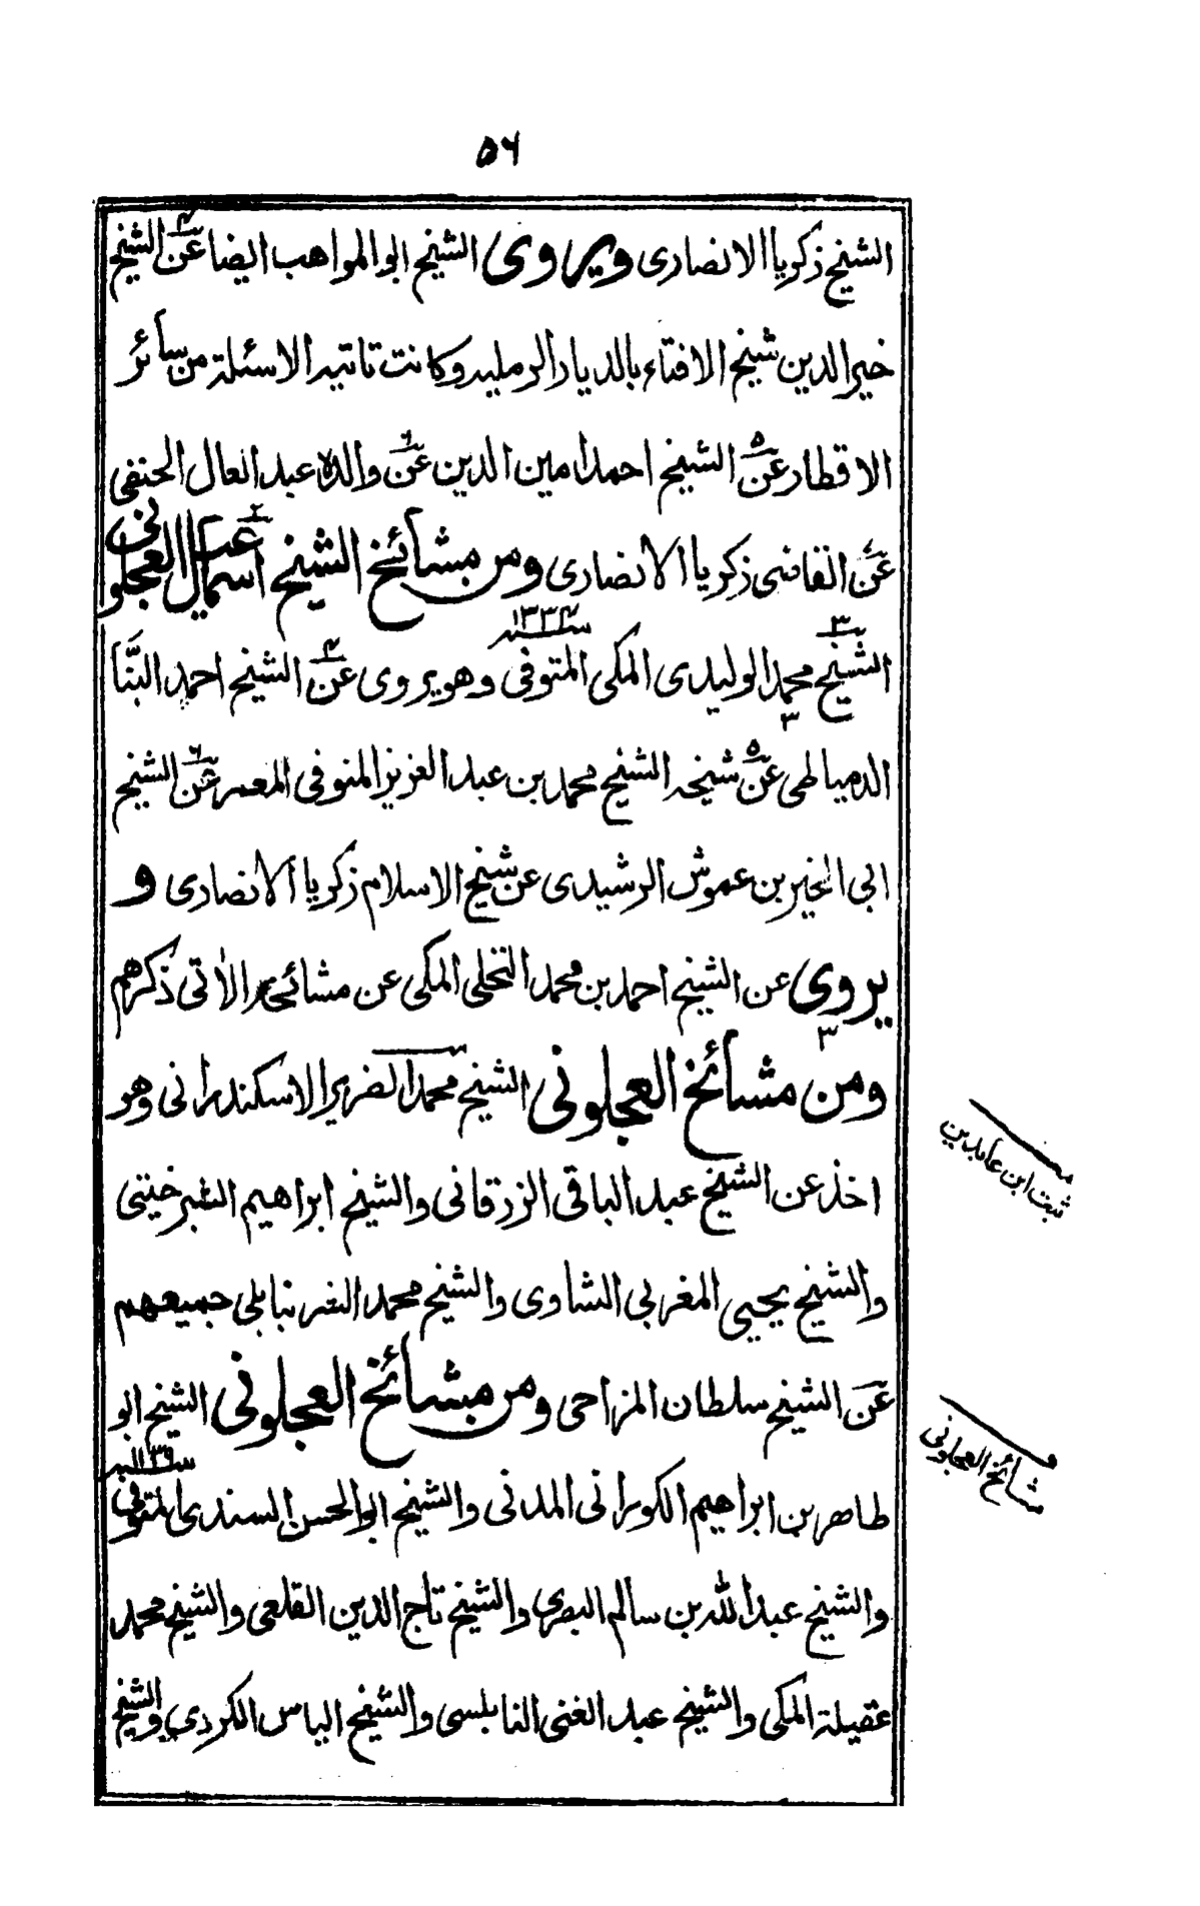 ٥٦
الشيخ زكريا الانصارى ويروى الشيخ ابو المواهب ايضا عن الشيخ
خير الدين شيخ الافتاء بالديار الرمليه وكانت تاتيه الاسئلة من سائر
الاقطار عن الشيخ احمد امين الدين عن والده عبد العال الحنفى
عن القاضى زكريا الانصارى ومن مشائخ الشيخ اسمعيل العجلونى
الشيخ محمد الوليدى المكى المتوفى سنه ١١٣٤ وهو يروى عن الشيخ احمد البنّا
الدمياطى عن شيخه الشيخ محمد بن عبد العزيز المنوفى المعمر عن الشيخ
ابى الخير بن عموش الرشيدى عن شيخ الاسلام زكريا الانصارى و
يروى عن الشيخ احمد بن محمد النخلى المكى عن مشائخه الاتى ذكرهم
ومن مشائخ العجلونى الشيخ محمد الضرير الاسكندرانى وهو
اخذ عن الشيخ عبد الباقى الزرقانى والشيخ ابراهيم الشبرخيتى
والشيخ يحيى المغربى الشاوى والشيخ محمد الشرنبابلى جميعهم
عن الشيخ سلطان المزاحى ومن مشائخ العجلونى الشيخ ابو
طاهر بن ابراهيم الكورانى المدنى والشيخ ابو الحسن السندى المتوفى سنه ١١٣٩
والشيخ عبد الله بن سالم البصرى والشيخ تاج الدين القلعى والشيخ محمد
عقيلة المكى والشيخ عبد الغنى النابلسى والشيخ الياس الكردي والشيخ
ثبت ابن عابدين
مشائخ العجلونى